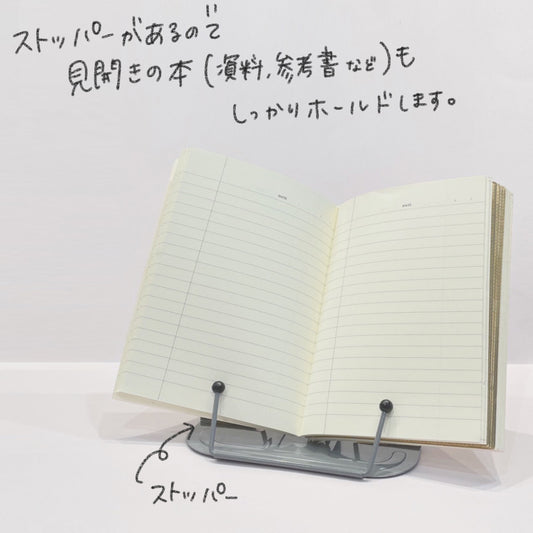 ストッパーがあるので
見開きの本(資料、参考書など)も
しっかりホールドします。
ストッパー